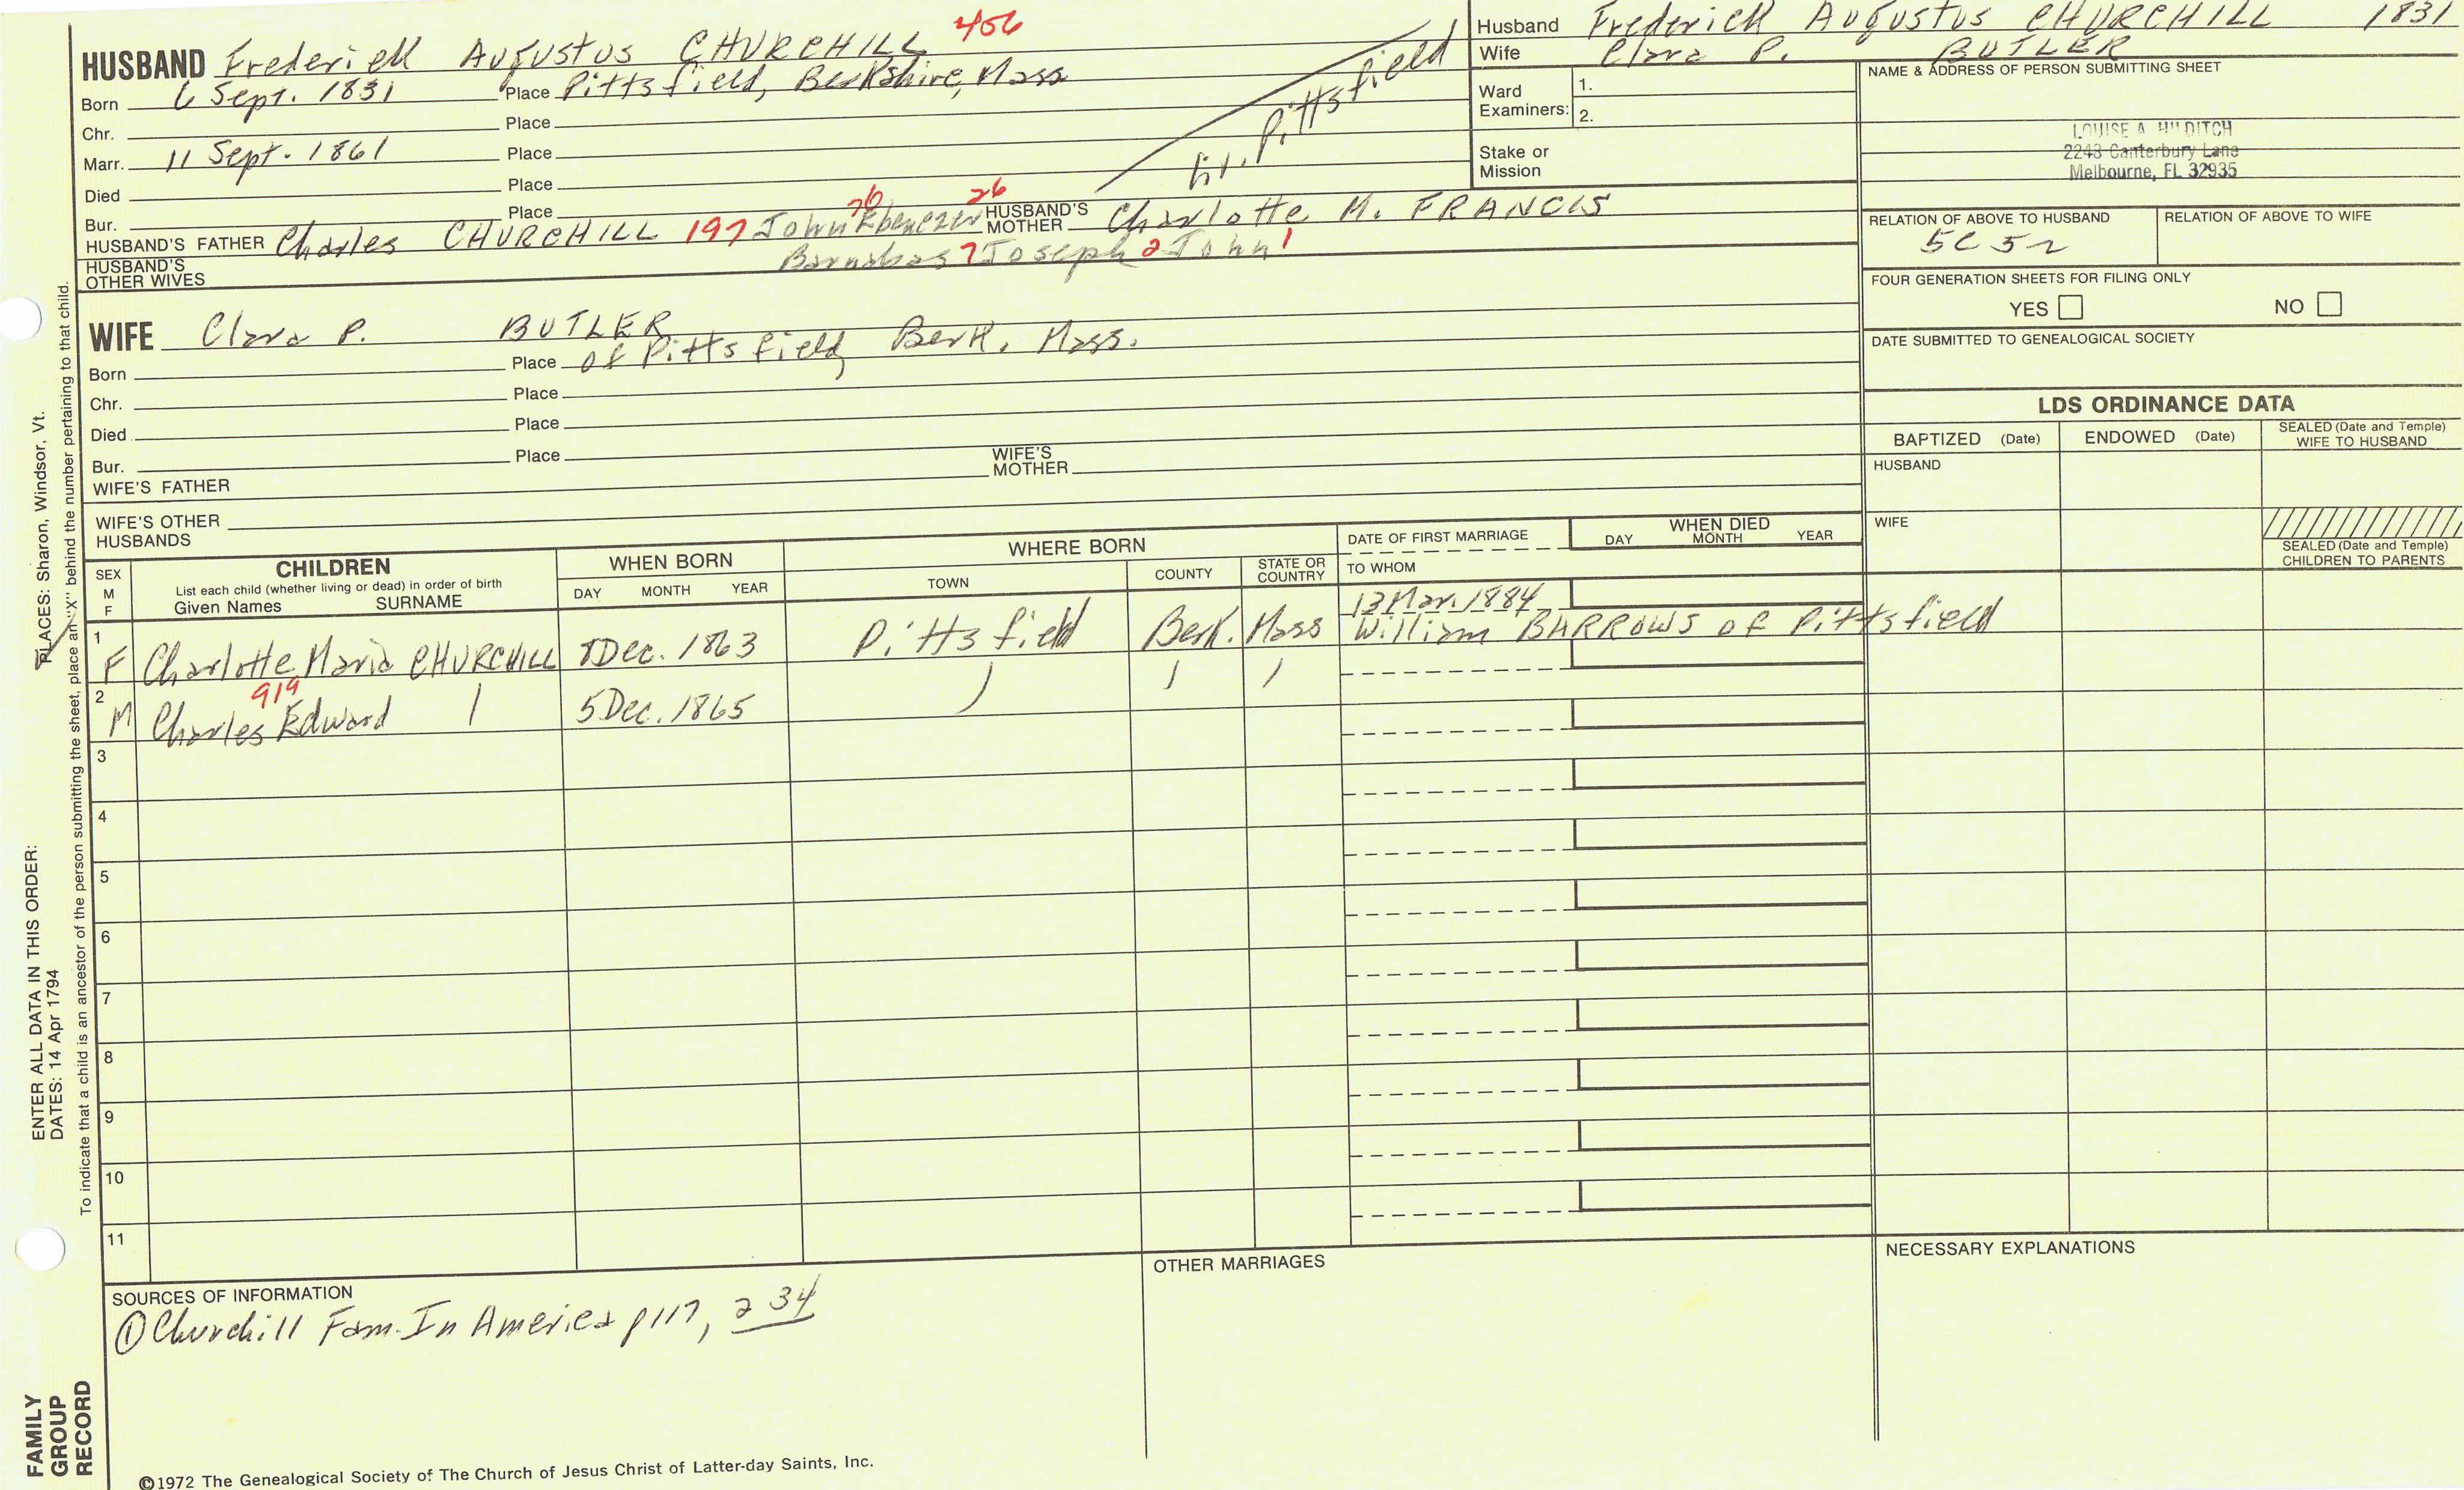 HUSBAND Frederick Augustus CHURCHILL 406
Born 6 Sept. 1831 Place Pittsfield, Berkshire, Mass
Chr. Place
Marr. 11 Sept. 1861 Place
Died Place
Bur. Place
HUSBAND'S FATHER Charles CHURCHILL 197 John 76 Ebenezer 26 HUSBAND'S MOTHER Charlotte M. FRANCIS
Barnabas 7 Joseph 2 John 1
HUSBAND'S OTHER WIVES
Pittsfield
Husband Frederick Augustus CHURCHILL 1831
Wife Clara P. BUTLER
Ward Examiners: 1.
2.
Stake or Mission
NAME & ADDRESS OF PERSON SUBMITTING SHEET
LOUISE A. HILDITCH
2243 Canterbury Lane
Melbourne, FL 32935
RELATION OF ABOVE TO HUSBAND RELATION OF ABOVE TO WIFE
5C 5r
FOUR GENERATION SHEETS FOR FILING ONLY
YES NO
DATE SUBMITTED TO GENEALOGICAL SOCIETY
WIFE Clara P. BUTLER
Born Place of Pittsfield, Berk, Mass.
Chr. Place
Died Place
Bur. Place
WIFE'S FATHER WIFE'S MOTHER
WIFE'S OTHER HUSBANDS
LDS ORDINANCE DATA
BAPTIZED (Date) ENDOWED (Date) SEALED (Date and Temple) WIFE TO HUSBAND
HUSBAND
WIFE
SEALED (Date and Temple) CHILDREN TO PARENTS
SEX M F
CHILDREN
List each child (whether living or dead) in order of birth
Given Names SURNAME
WHEN BORN
DAY MONTH YEAR
WHERE BORN
TOWN COUNTY STATE OR COUNTRY
DATE OF FIRST MARRIAGE
TO WHOM
WHEN DIED
DAY MONTH YEAR
13 Mar. 1884
1 F Charlotte Maria CHURCHILL 8 Dec. 1863 Pittsfield Berk. Mass William BARROWS of Pittsfield
919
2 M Charles Edward 5 Dec. 1865
3
4
5
6
7
8
9
10
11
SOURCES OF INFORMATION
① Churchill Fam. In America p117, 234
OTHER MARRIAGES
NECESSARY EXPLANATIONS
©1972 The Genealogical Society of The Church of Jesus Christ of Latter-day Saints, Inc.
FAMILY GROUP RECORD
ENTER ALL DATA IN THIS ORDER:
DATES: 14 Apr 1794
PLACES: Sharon, Windsor, Vt.
To indicate that a child is an ancestor of the person submitting the sheet, place an "X" behind the number pertaining to that child.